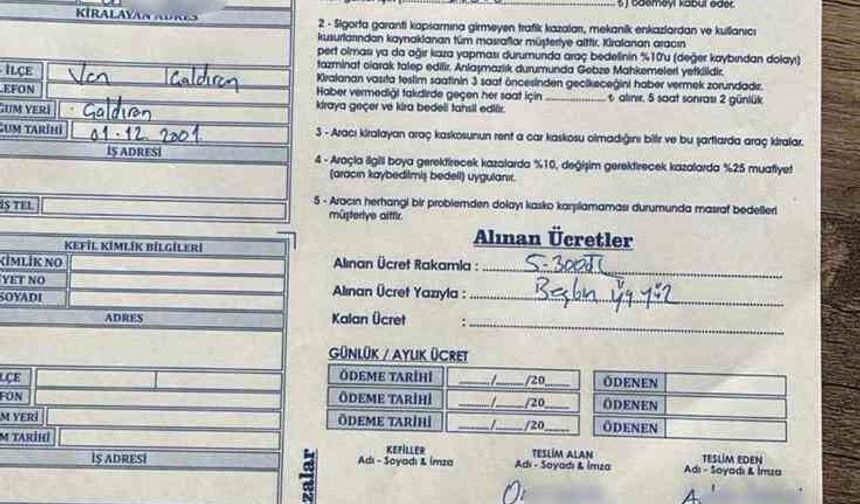 KİRALAYAN ADRES
İLÇE Van Çaldıran
LEFON
ĞUM YERİ : Çaldıran
ĞUM TARİHİ 01.12.2001
İŞ ADRESİ
İŞ TEL
KEFİL KİMLİK BİLGİLERİ
KİMLİK NO
YET NO
SOYADI
ADRES
LÇE
FON
M YERİ
M TARİHİ
İŞ ADRESİ
ödemeyi kabul eder.
2 - Sigorta garanti kapsamına girmeyen trafik kazaları, mekanik enkazlardan ve kullanıcı
kusurlarından kaynaklanan tüm masraflar müşteriye aittir. Kiralanan aracın
pert olması ya da ağır kaza yapması durumunda araç bedelinin %10'u (değer kaybından dolayı)
tazminat olarak talep edilir. Anlaşmazlık durumunda Gebze Mahkemeleri yetkilidir.
Kiralanan vasıta teslim saatinin 3 saat öncesinden gecikeceğini haber vermek zorundadır.
Haber vermediği takdirde geçen her saat için ............ ₺ alınır. 5 saat sonrası 2 günlük
kiraya geçer ve kira bedeli tahsil edilir.
3 - Aracı kiralayan araç kaskosunun rent a car kaskosu olmadığını bilir ve bu şartlarda araç kiralar.
4 - Araçla ilgili boya gerektirecek kazalarda %10, değişim gerektirecek kazalarda %25 muafiyet
(aracın kaybedilmiş bedeli) uygulanır.
5 - Aracın herhangi bir problemden dolayı kasko karşılamaması durumunda masraf bedelleri
müşteriye aittir.
Alınan Ücretler
Alınan Ücret Rakamla : 5.300 TL
Alınan Ücret Yazıyla : Beşbin Üç yüz
Kalan Ücret :
GÜNLÜK / AYLIK ÜCRET
ÖDEME TARİHİ ....../....../20...... ÖDENEN
ÖDEME TARİHİ ....../....../20...... ÖDENEN
ÖDEME TARİHİ ....../....../20...... ÖDENEN
KEFİLLER TESLİM ALAN TESLİM EDEN
Adı - Soyadı & İmza Adı - Soyadı & İmza Adı - Soyadı & İmza
zalar